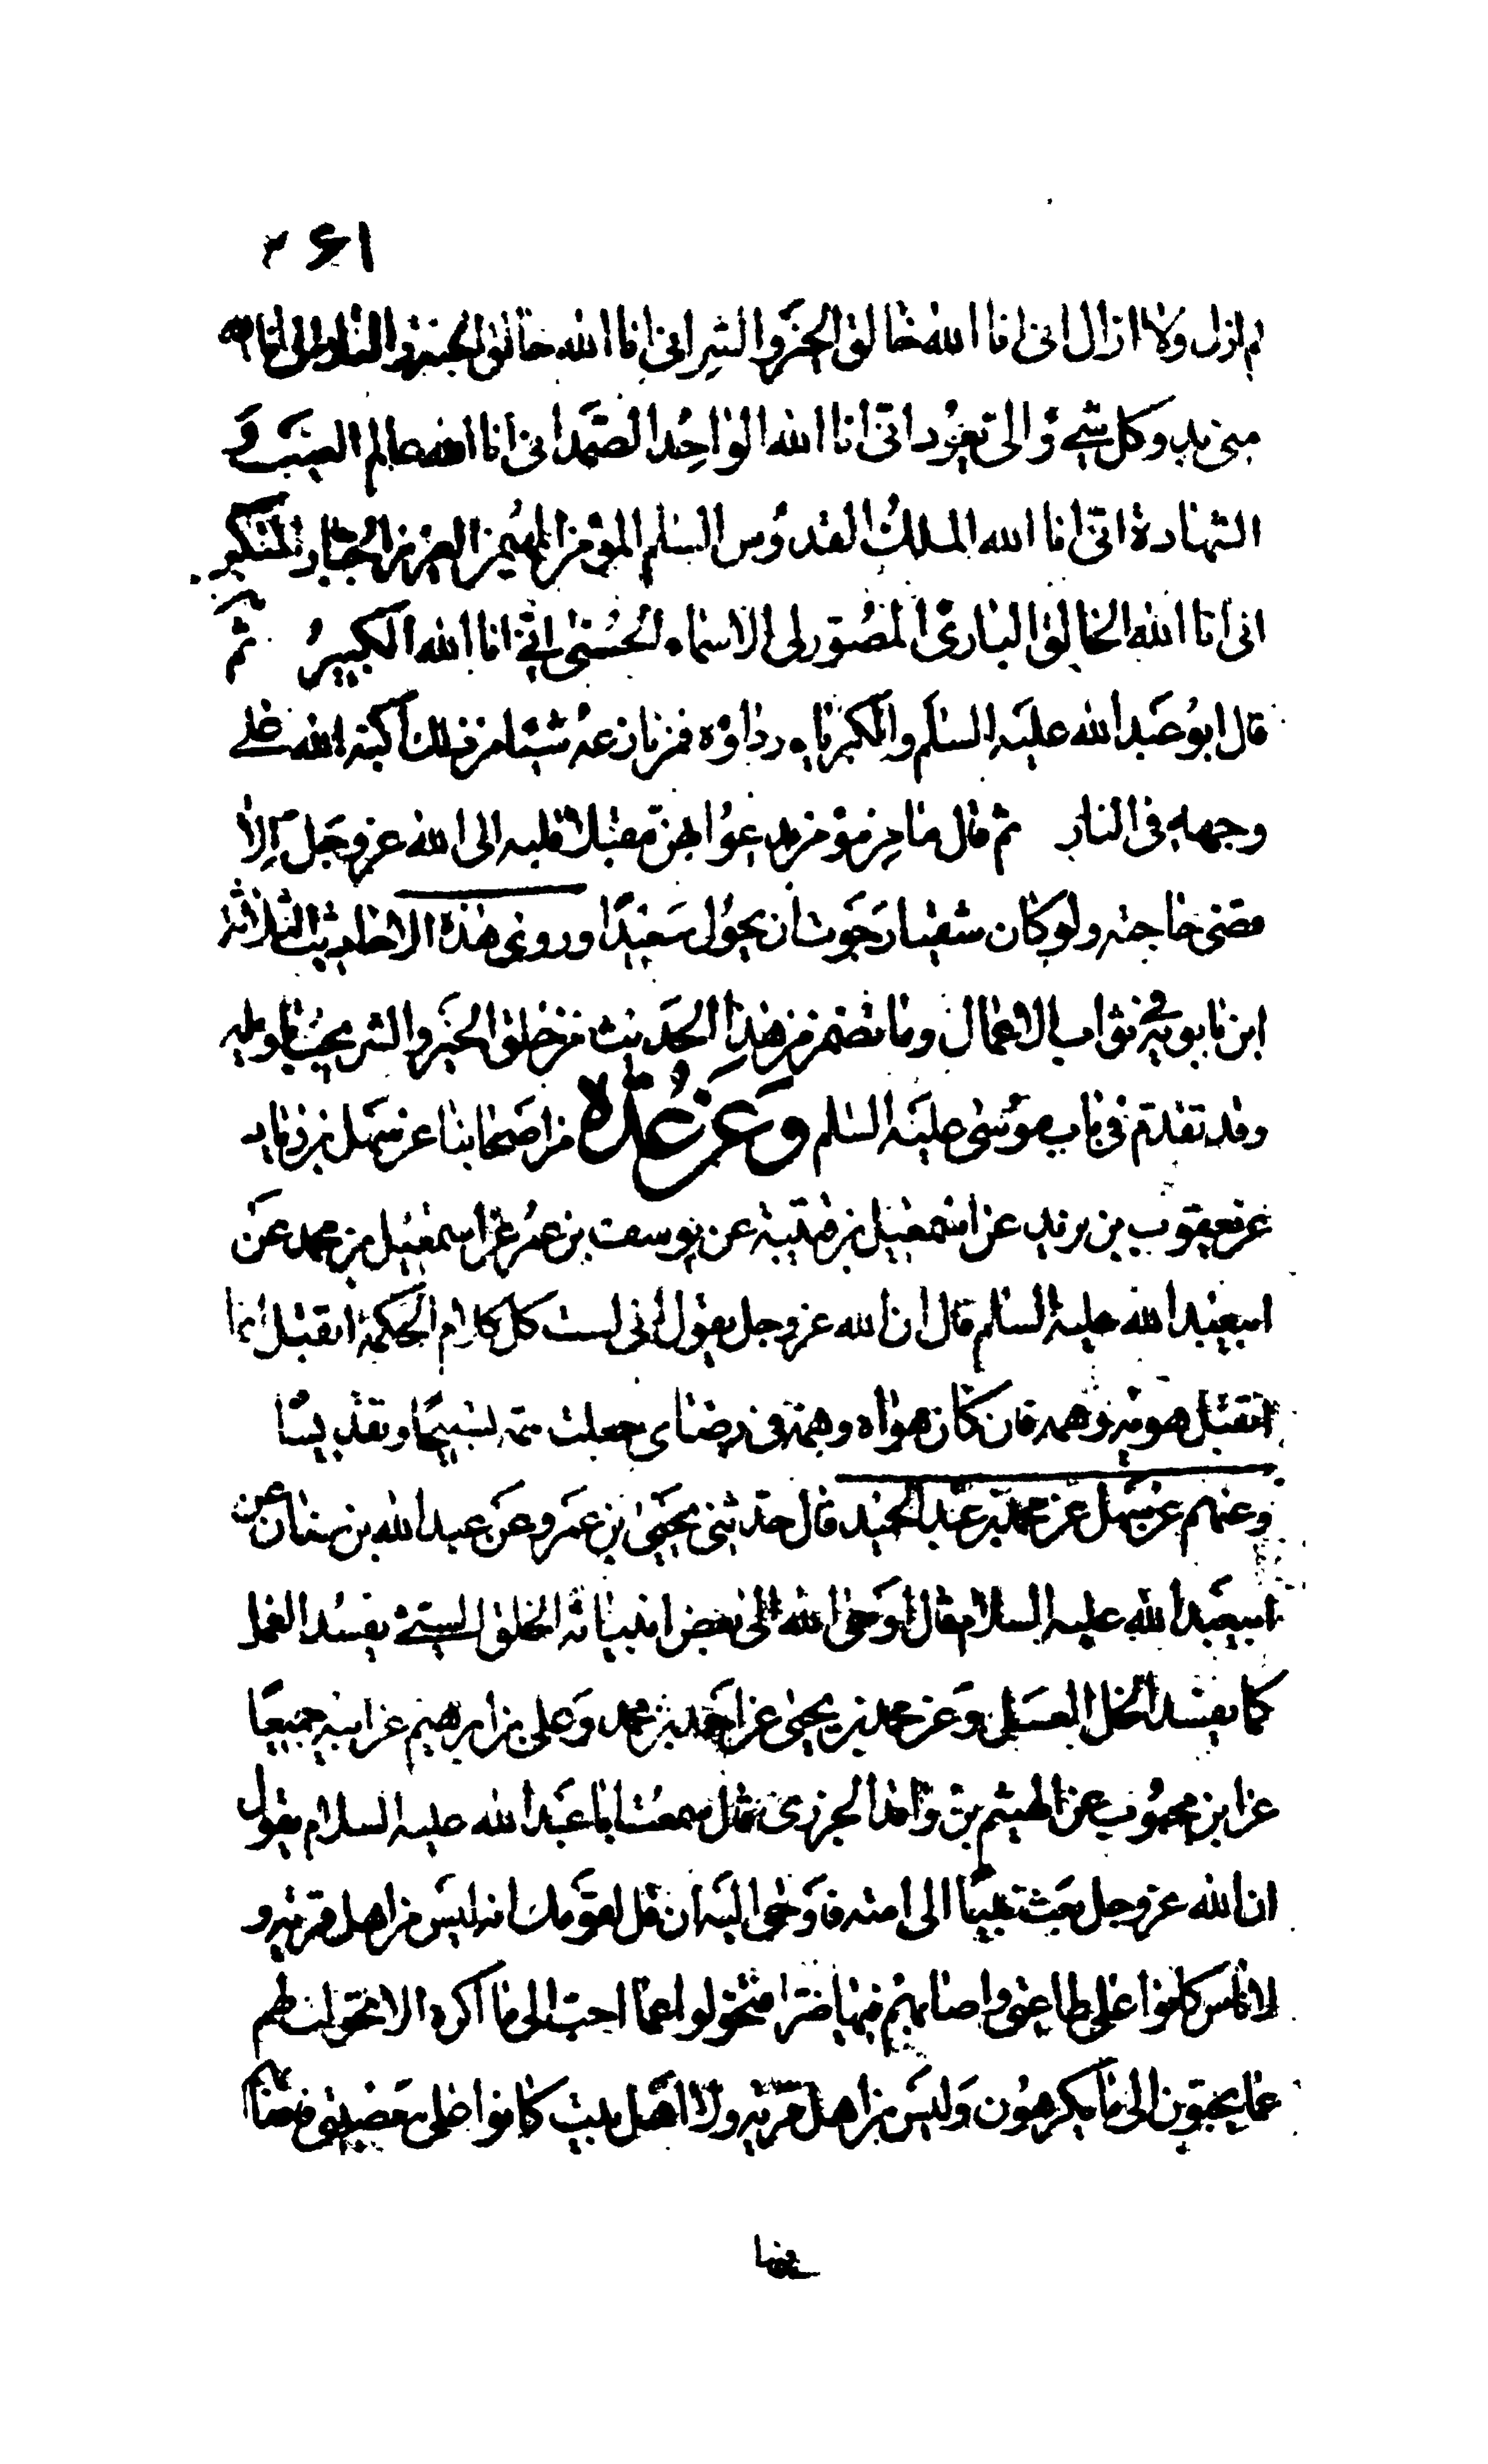 ٣٦١
لم ازل ولا ازال انى انا الله خالق الخير والشر انى انا الله خالق الجنة والنار انى انا الله
منى بدء كل شئ والى يعود انى انا الله الواحد الصمد انى انا الله عالم الغيب و
الشهادة انى انا الله الملك القدوس السلم المؤمن المهيمن العزيز الجبار المتكبر
انى انا الله الخالق البارئ المصور لى الاسماء الحسنى انى انا الله الكبير ثم
قال ابو عبد الله عليه السلم والكبرياء رداؤه فمن نازعه شيئا من ذلك اكبه الله على
وجهه فى النار ثم قال ما من مؤمن يدعو بهن مقبلا قلبه الى الله عز وجل الا
قضى حاجته ولو كان شقيا رجوت ان يحول سعيدا وروى هذه الاحاديث الثلاثة
ابن بابويه فى ثواب الاعمال وما تضمن من هذا الحديث من خلق الخير والشر يجب تاويله
وقد تقدم فى باب موسى عليه السلم وعن عدة من اصحابنا عن سهل بن زياد
عن يعقوب بن يزيد عن اسمعيل بن قتيبة عن يوسف بن عمر عن اسمعيل بن محمد عن
ابيعبد الله عليه السلم قال ان الله عز وجل يقول انى لست كل كلام الحكمة اتقبل انما
اتقبل هويه وهمه فان كان هواه وهمه فى رضاى جعلت همه تسبيحا وتقديسا
وعنهم عن سهل عن محمد بن عبد الحميد قال حدثنى يحيى بن عمرو عن عبد الله بن سنان عن
ابيعبد الله عليه السلام قال اوحى الله الى بعض انبيائه الخلق السئ يفسد العمل
كما يفسد الخل العسل وعن محمد بن يحيى عن احمد بن محمد وعلى بن ابرهيم عن ابيه جميعا
عن ابن محبوب عن الهيثم بن واقد الجزرى قال سمعت ابا عبد الله عليه السلام يقول
ان الله عز وجل بعث نبيا الى امته فاوحى اليه ان قل لقومك انه ليس من اهل قرية و
لا ناس كانوا على طاعتى واصابهم فيها ضرا فتحولوا عما احب الى ما اكره الا تحولت لهم
عما يحبون الى ما يكرهون وليس من اهل قرية ولا اهل بيت كانوا على معصيتى